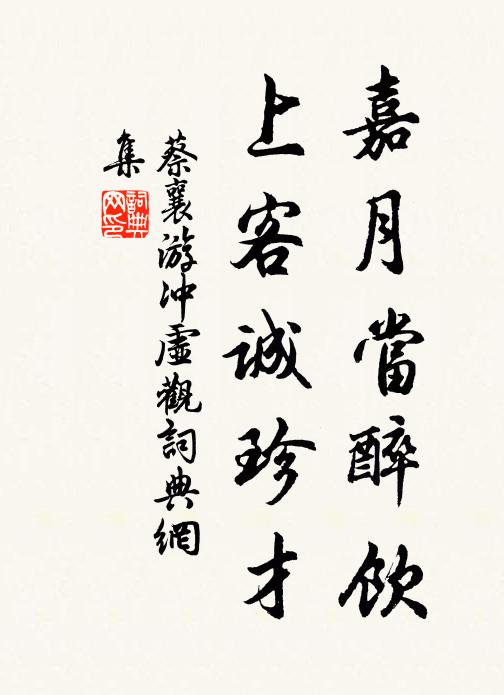 嘉月當醉飲
上客誠珍才
蔡襄游冲虛觀詞典網
集
詞典網印